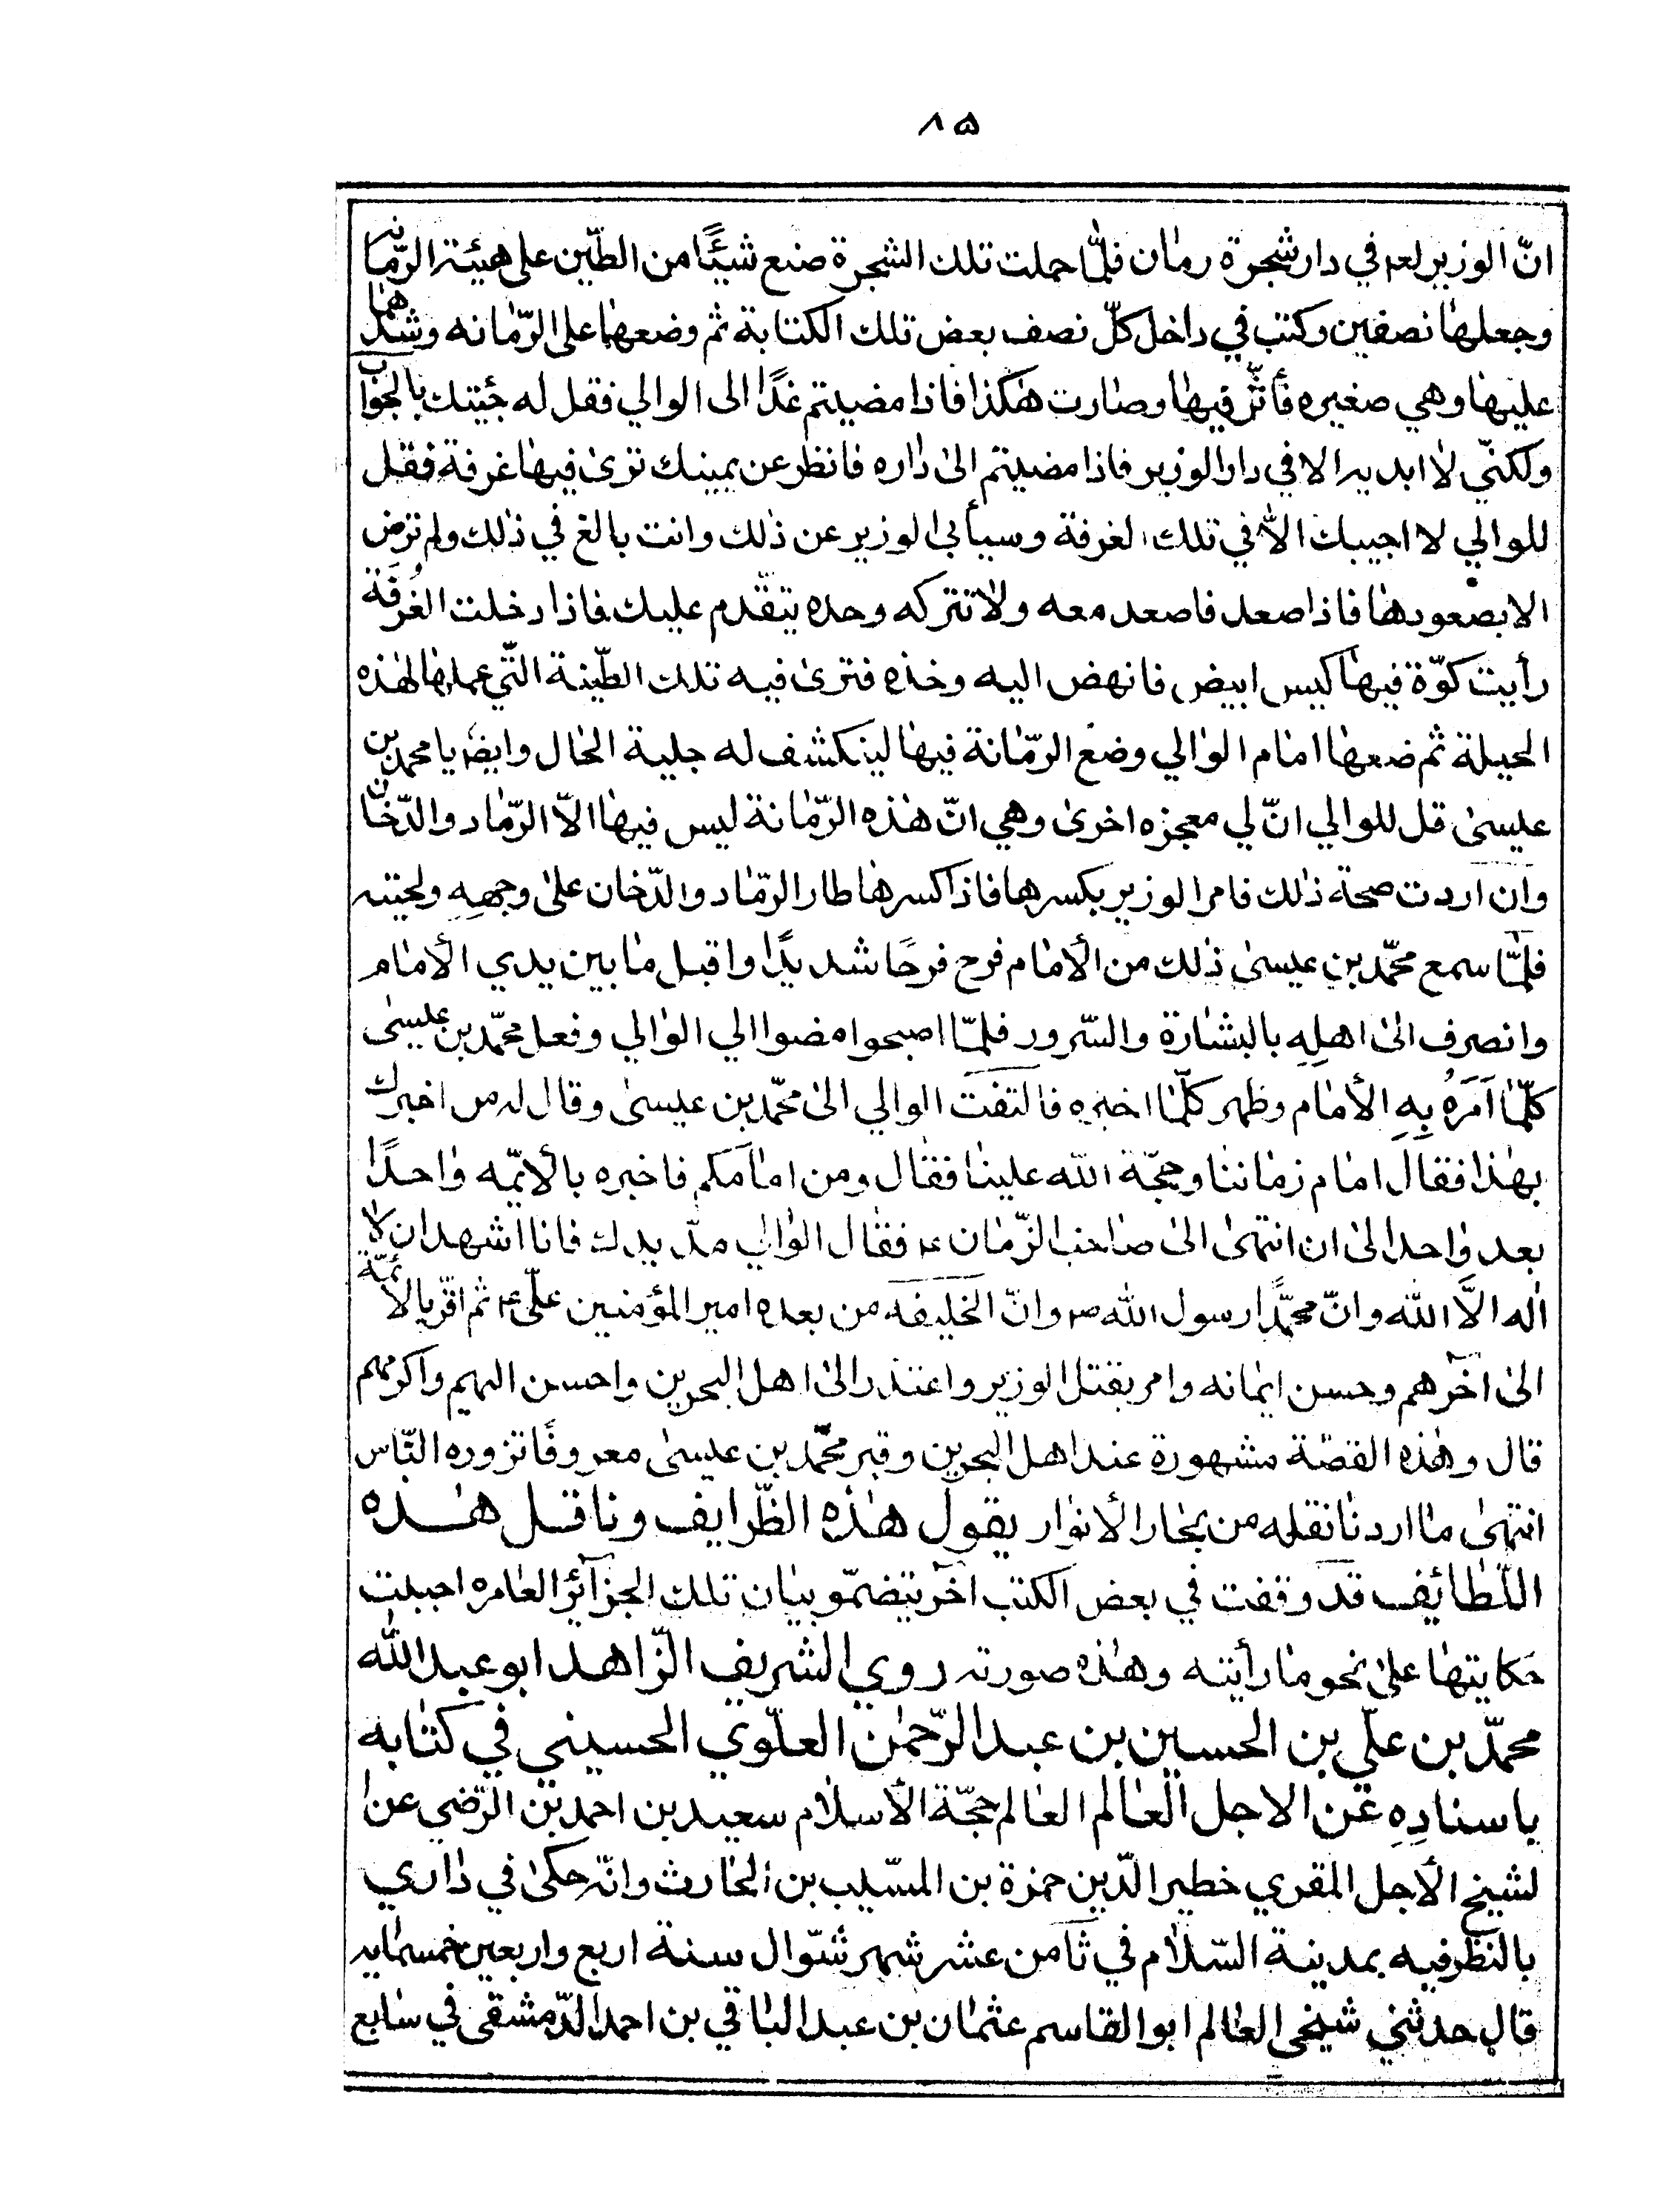 ٨۵
انّ الوزير لعم في دار شجرة رمان فلمّا حملت تلك الشجرة صنع شيئًا من الطّين على هيئة الرّمانه
وجعلها نصفين وكتب في داخل كلّ نصف بعض تلك الكتابة ثم وضعها على الرّمانه وشدّهما
عليها وهي صغيره فأثّر فيها وصارت هكذا فاذا مضيتم غدًا الى الوالي فقل له جئتك بالجواب
ولكنّي لا ابديه الا في دار الوزير فاذا مضيتم الى داره فانظر عن يمينك ترى فيها غرفة فقل
للوالي لا اجيبك الّا في تلك الغرفة وسيأبى الوزير عن ذلك وانت بالغ في ذلك ولم ترض
الا بصعودها فاذا صعد فاصعد معه ولا تتركه وحده يتقّدم عليك فاذا دخلت الغُرفَة
رأيت كوّة فيها كيس ابيض فانهض اليه وخذه فترى فيه تلك الطّينة الّتي عملها لهذه
الحيلة ثم ضعها امام الوالي وضع الرمّانة فيها لينكشف له جلية الحال وايضا يا محمد بن
عيسى قل للوالي انّ لي معجزه اخرى وهي انّ هذه الرّمانة ليس فيها الّا الرّماد والدّخان
وان اردت صحة ذلك فامر الوزير بكسرها فاذا كسرها طار الرّماد والدّخان على وجهه ولحيته
فلمّا سمع محمّد بن عيسى ذلك من الأمام فرح فرحًا شديدًا واقبل ما بين يدي الأمام
وانصرف الى اهلِهِ بالبشارة والسّرور فلمّا اصبحوا مضوا الي الوالي وفعل محمّد بن عيسى
كلّما اَمَرَهُ بِهِ الأمام وظهر كلّما اخبره فالتفت الوالي الى محمّد بن عيسى وقال له من اخبرك
بهذا فقال امام زماننا وحجّة الله علينا فقال ومن امامكم فاخبره بالأئمّه واحدًا
بعد واحد الى ان انتهى الى صاحب الزّمان عم فقال الوالي مدّ يدك فانا اشهد ان لا
اله الّا الله وانّ محمّدًا رسول الله ص وانّ الخليفه من بعده امير المؤمنين علّي عم ثم اقرّ بالأئمّة
الى آخرهم وحسن ايمانه وامر بقتل الوزير واعتذر الى اهل البحرين واحسن اليهم واكرمهم
قال وهذه القصّة مشهورة عند اهل البحرين وقبر محمّد بن عيسى معروفًا تزوره النّاس
انتهى ما اردنا نقله من بحار الأنوار يقول هذه الظّرايف وناقل هذه
اللّطائف قد وقفت في بعض الكتب اخر يتضمّو بيان تلك الجزآئر العامره احببت
حكايتها على نحو ما رأيته وهذه صورته روي الشريف الزّاهد ابو عبد الله
محمّد بن علّي بن الحسين بن عبد الرّحمن العلّوي الحسيني في كتابه
باسنادِهِ عَن الاجل العالم العالم حجّة الأسلام سعيد بن احمد بن الرّضي عن ا
لشيخ الأجل المقري خطير الدّين حمزة بن المسّيب بن الحارث وانّه حكى في داري
بالنظر فيه بمدينة السّلام في ثامن عشر شهر شوّال سنة اربع واربعين خمسمايه
قال حدثني شيخى العالم ابو القاسم عثمان بن عبد الباقي بن احمد الدّمشقى في سابع